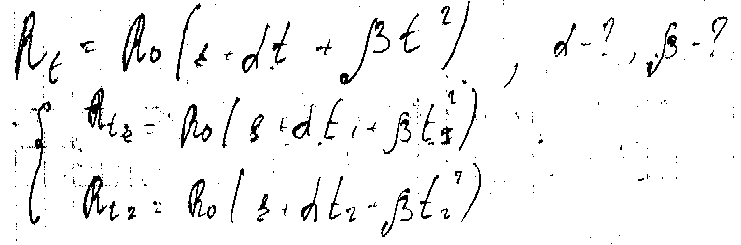 R_t = R_0 (1 + αt + βt²), α-?, β-?
R_{t1} = R_0 (1 + αt_1 + βt_1²)
R_{t2} = R_0 (1 + αt_2 + βt_2²)